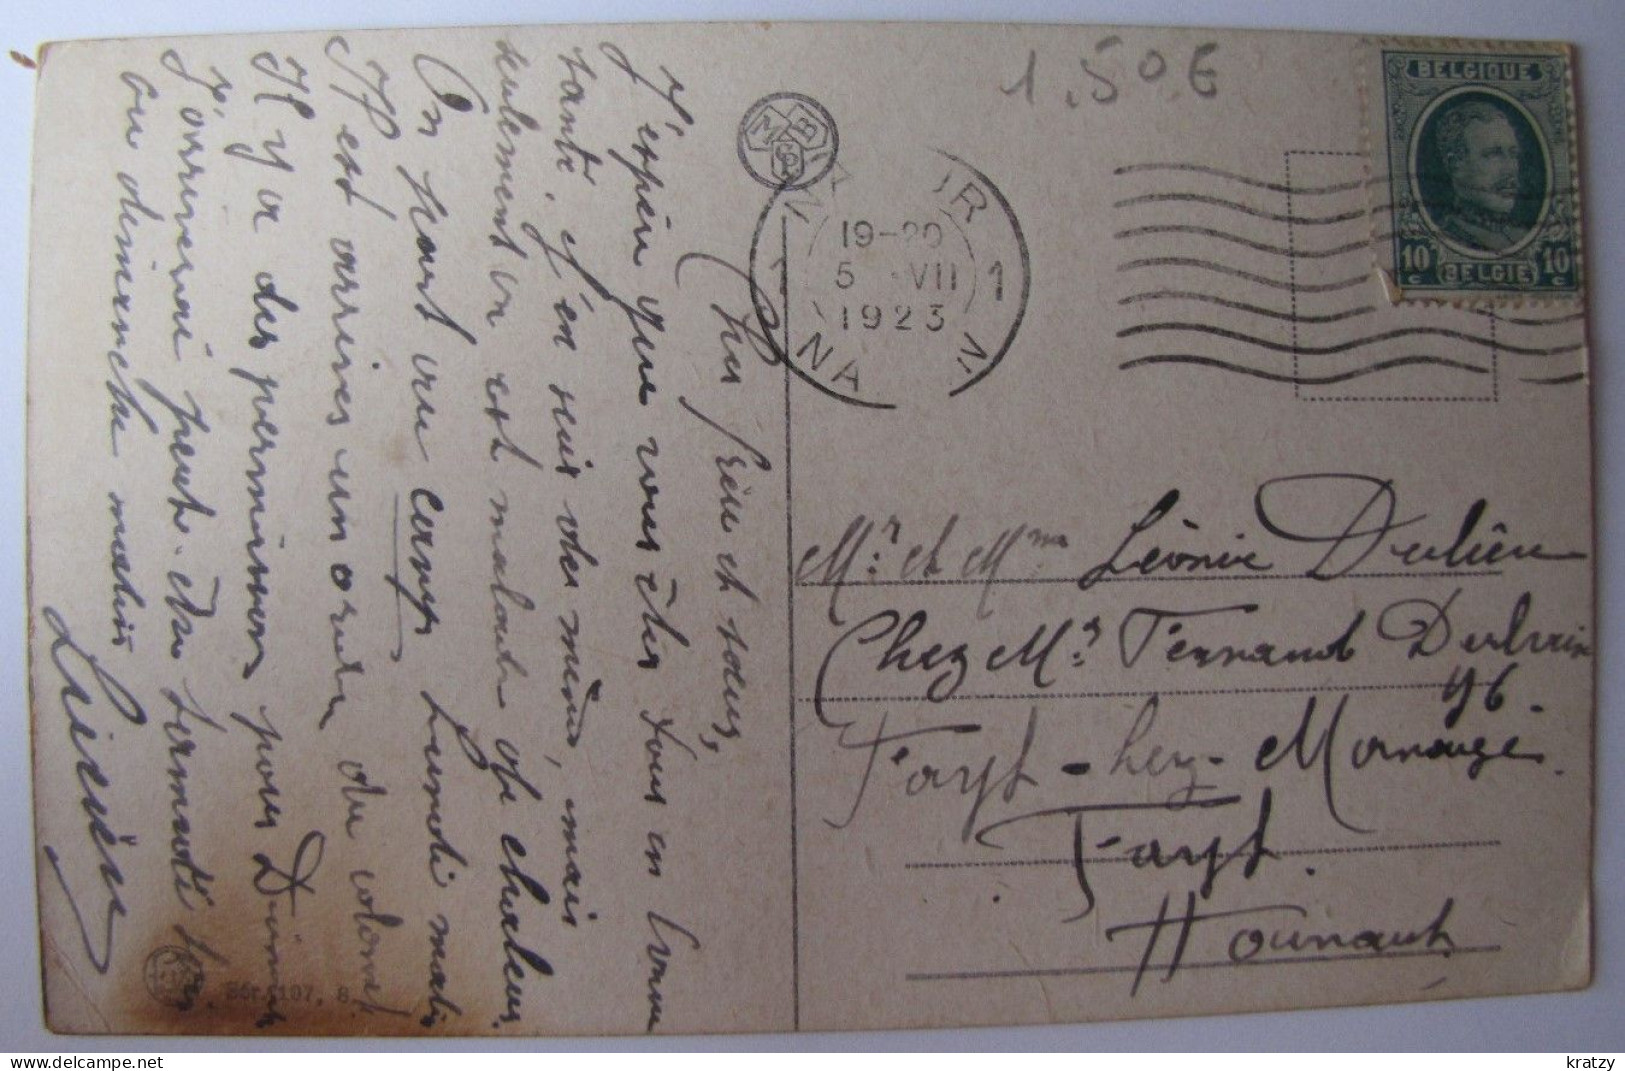 Cher frère et soeur,
J'espère que vous êtes tous en bonne
santé. J'en suis de même, mais
seulement on est malade de chaleur.
On part au camp Lundi matin
Il est arrivés un ordre du colonel
Il y a des permissions pour Dimanche
J'arriverai peut-être samedi soir
ou dimanche matin
Lucien
Sér. 107, 8.
MB
1.50 €
NAMUR 1
19-20
5 VII
1923
NAMEN 1
BELGIQUE
10 BELGIE 10
Mr et Mme Léonce Dulieu
Chez Mr Fernand Dulrain
46.
Fayt-lez-Manage.
Fayt.
Hainaut
kratzy